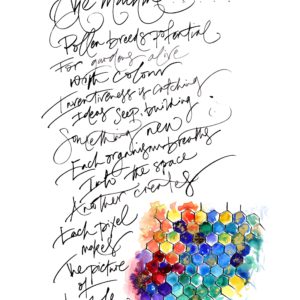 The Machine
Pollen breeds potential
For gardens alive
With Colour
Inventiveness is catching
Ideas seep, building
Something new
Each organism breaths
Into the space
Another creates
Each pixel
makes
The picture
of